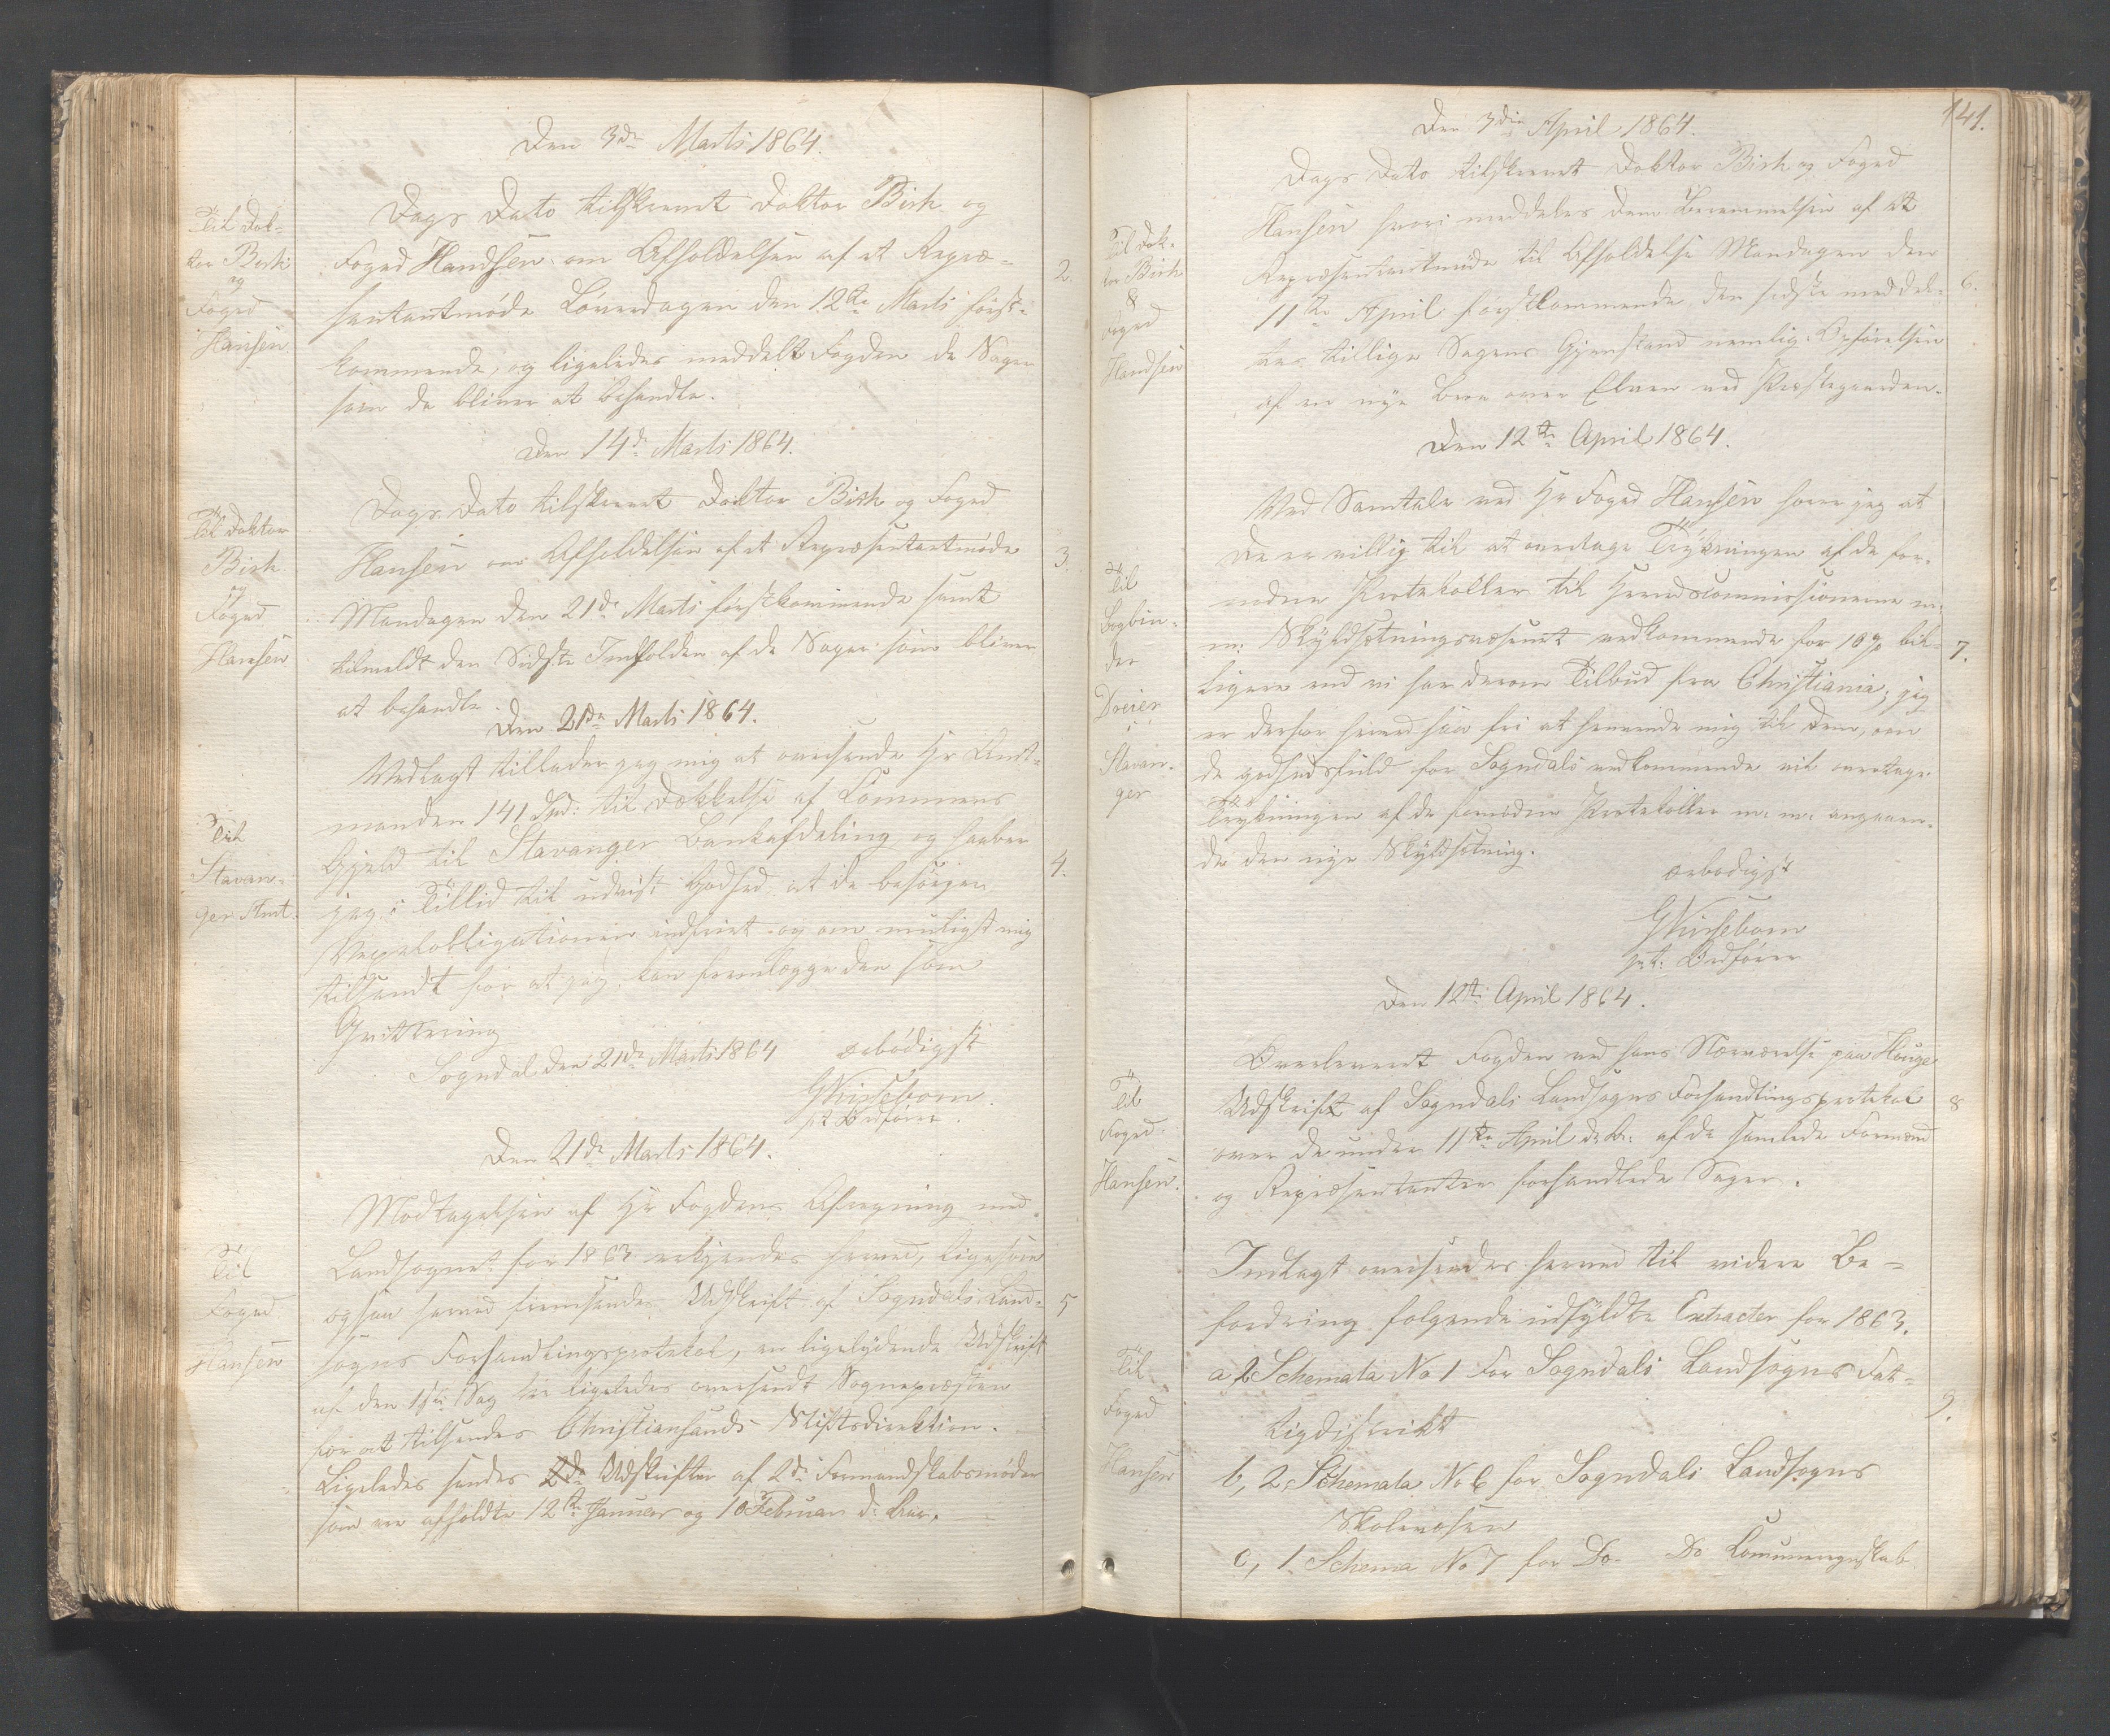 Den 3de Marts 1864.
Til Dok-
tor Birk
og
Foged
Hansen
Dags Dato tilskrevet Doktor Birk og
Foged Handsen om Afholdelsen af et Repræ-
sentantmøde Løverdagen den 12te Marts først-
kommende, og ligeledes meddelt Fogden de Sager
som da bliver at behandle.
2.
Den 14de Marts 1864.
Til Doktor
Birk
og
Foged
Hansen
Dags Dato tilskrevet Doktor Birk og Foged
Hansen om Afholdelsen af et Repræsentantmøde
Mandagen den 21de Marts førstkommende samt
tilmeldt den Sidste Indholden af de Sager som bliver
at behandle.
3.
Den 21de Marts 1864.
Til
Stavan-
ger Amt.
Vedlagt tillader jeg mig at oversende Hr Amt-
manden 141 Spd: til Dækkelse af Kommunens
Gjeld til Stavanger Bankafdeling og haaber
jeg i Tillid til udvist Godhed at de besørger
Vexelobligationen indfriet og om muligt mig
tilsendt for at jeg kan fremlægge den som
Qvittering
4.
Sogndal den 21de Marts 1864 ærbødigst
pt Ordfører.
Den 21de Marts 1864.
Til
Foged
Hansen
Modtagelsen af Hr Fogdens Afregning med
Landsognet for 1863 erkjendes herved, ligesom
ogsaa herved fremsendes Udskrift af Sogndals Land-
sogns Forhandlingsprotokol, en ligelydende Udskrift
af den 1ste Sag er ligeledes oversendt Sognepræsten
for at tilsendes Christiansands Stiftsdirektion.
Ligeledes sendes 2de Udskrifter af 2de Formandskabsmøder
som er afholdte 12te Januar og 10 Februar d: Aar.
5
141.
Den 3die April 1864.
Til Dok-
tor Birk
&
Foged
Handsen
Dags Dato tilskrevet Doktor Birk og Foged
Hansen hvori meddeles dem Berammelsen af et
Repræsentantmøde til Afholdelse Mandagen den
11te April førstkommende, den sidste meddel-
tes tillige Sagens Gjenstand nemlig Opførelsen
af en nye Bro over Elven ved Præstegaarden.
6.
Den 12te April 1864.
Til
Bogbin-
der
Dreier
i
Stavan-
ger
Ved Samtale med Hr Foged Hansen hører jeg at
De er villig til at overtage Trykningen af de for-
nødne Protokoller til Herredscommissionerne m.
m: Skyldsætningsvæsenet vedkommende for 10% bil-
ligere end vi har derom Tilbud fra Christiania; jeg
er derfor herved saa fri at henvende mig til Dem, om
de godhedsfuld for Sogndals vedkommende vil overtage
Trykningen af de fornødne Protokoller m: m: angaaen-
de den nye Skyldsætning.
7.
ærbødigst
pt: Ordfører
Den 12te April 1864.
Til
Foged
Hansen.
Overleveret Fogden ved hans Nærværelse paa Hauge
Udskrift af Sogndals Landsogns Forhandlingsprotokol
over de under 11te April d: A: af de samlede Formænd
og Repræsentanter forhandlede Sager.
8
Til
Foged
Hansen
Indlagt oversendes herved til videre Be-
fordring følgende udfyldte Extracter for 1863.
a 2 Schemata No 1 For Sogndals Landsogns Fat-
tigdistrikt
b, 2 Schemata No 6 for Sogndals Landsogns
Skolevæsen
c, 1 Schema No 7 for Do Do Kommuneregnskab
9.